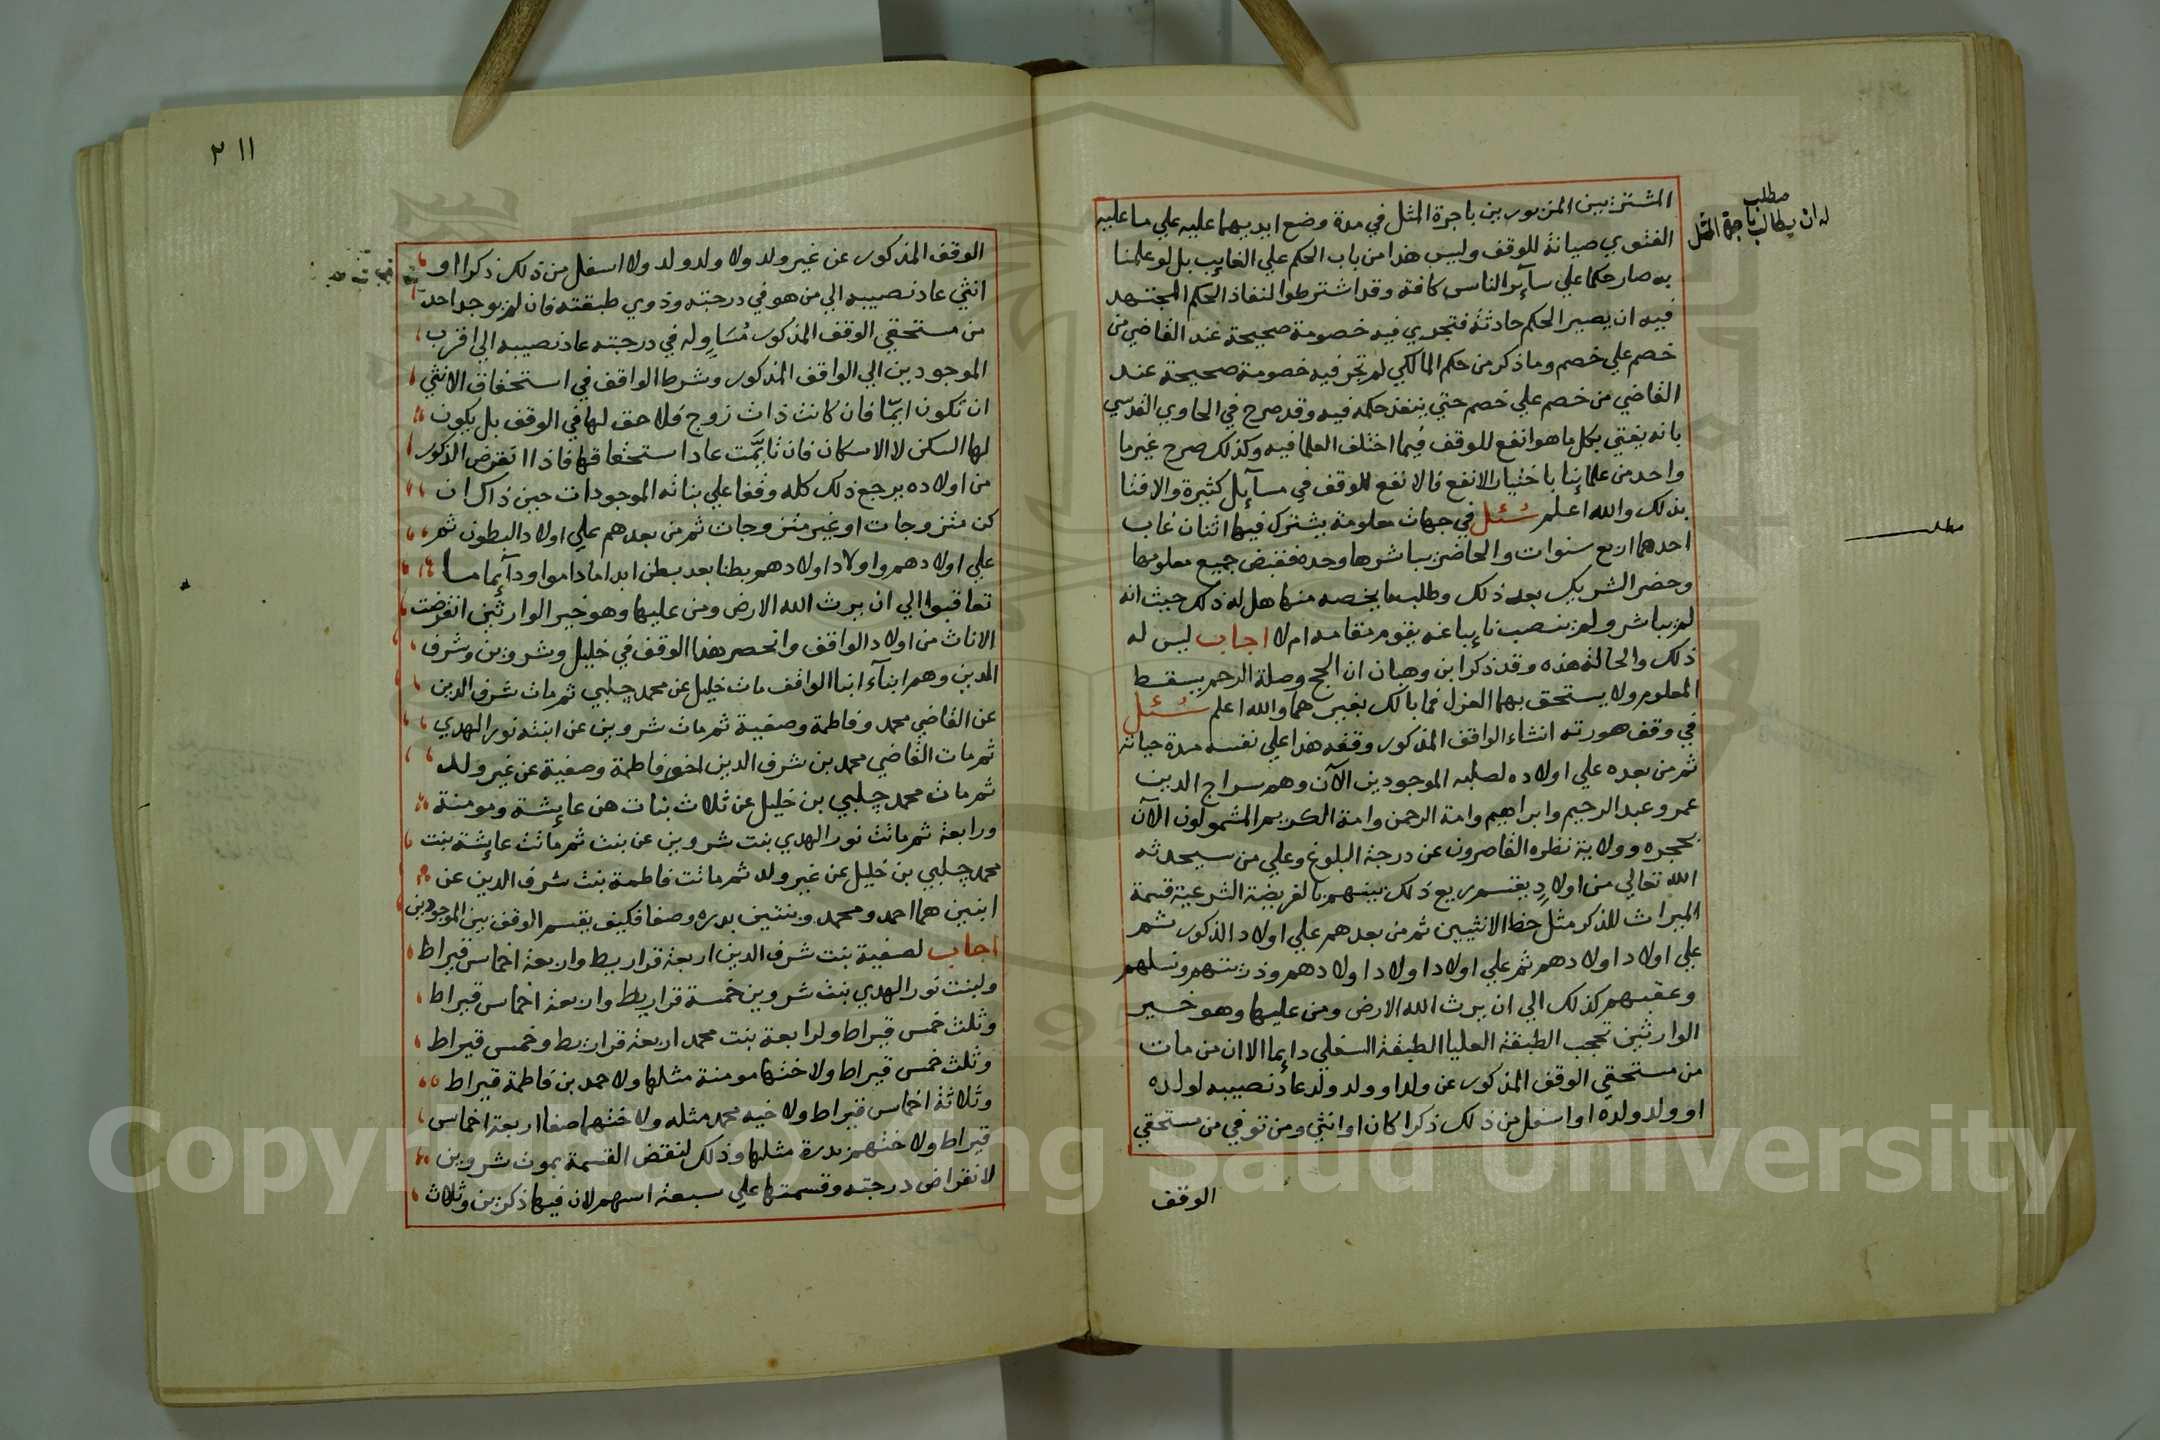 المشتريين المزبورين باجرة المثل في مدة وضع ايديهما عليه علي ما عليه
الفتوي صيانة للوقف وليس هذا من باب الحكم علي الغايب بل لو علمنا
به صار حكما علي سآير الناس كافة وقد اشترطوا لنفاذ الحكم المجتهد
فيه ان يصير الحكم حادثة فتجري فيه خصومة صحيحة عند القاضي من
خصم علي خصم وما ذكر من حكم المالكي لم تجر فيه خصومة صحيحة عند
القاضي من خصم علي خصم حتي ينفذ حكمه فيه وقد صرح في الحاوي القدسي
بانه يفتي بكل ما هو انفع للوقف فيما اختلف العلما فيه وكذلك صرح غير ما
واحد من علمائنا باختيار الانفع فالانفع للوقف في مسآيل كثيرة والافتا
بذلك والله اعلم سُئل في جهات معلومة يشترك فيها اثنان غاب
احدهما اربع سنوات والحاضر يباشرها وحده فقبض جميع معلومها
وحضر الشريك بعد ذلك وطلب ما يخصه منها هل له ذلك حيث انه
لم يباشر ولم ينصب نايبا عنه يقوم مقامه ام لا اجاب ليس له
ذلك والحالة هذه وقد ذكر ابن وهبان ان الحج وصلة الرحم يسقط
المعلوم ولا يستحق بهما العزل فما بالك بغيرهما والله اعلم سُئل
في وقف صورته انشاء الواقف المذكور وقفه هذا علي نفسه مدة حياته
ثم من بعده علي اولاده لصلبه الموجودين الآن وهم سراج الدين
عمر وعبد الرحيم وابراهيم وامة الرحمن وامة الكريم المشمولون الآن
بحجره وولاية نظره القاصرون عن درجة البلوغ وعلي من سيحدثه
الله تعالي من اولادٍ يقسم ريع ذلك بينهم بالفريضة الشرعية قسمة
الميراث للذكر مثل حظ الانثيين ثم من بعدهم علي اولاد الذكور ثم
علي اولاد اولادهم ثم علي اولاد اولاد اولادهم وذريتهم ونسلهم
وعقبهم كذلك الي ان يرث الله الارض ومن عليها وهو خير
الوارثين تحجب الطبقة العليا الطبقة السفلي دايما الا ان من مات
من مستحقي الوقف المذكور عن ولد او ولد ولد عاد نصيبه لولده
او ولد ولده او اسفل من ذلك ذكرا كان او انثي ومن توفي من مستحقي
الوقف
مطلب
له ان يطالب باجرة المثل
مطلب
٢١١
الوقف المذكور عن غير ولد ولا ولد ولد ولا اسفل من ذلك ذكرا او
انثي عاد نصيبه الي من هو في درجته وذوي طبقته فان لم يوجد احد
من مستحقي الوقف المذكور مُسَاوٍ له في درجته عاد نصيبه الي اقرب
الموجودين الي الواقف المذكور وشرط الواقف في استحقاق الانثي
ان تكون ايمّا فان كانت ذات زوج فلا حق لها في الوقف بل يكون
لها السكن لا الاسكان فان تايّمت عاد استحقاقها فاذا انقرض الذكور
من اولاده يرجع ذلك كله وقفا علي بناته الموجودات حين ذاك ان
كن متزوجات او غير متزوجات ثم من بعدهم علي اولاد البطون ثم
علي اولادهم واولاد اولادهم بطنا بعد بطن ابدا ما داموا ودآيما ما
تعاقبوا الي ان يرث الله الارض ومن عليها وهو خير الوارثين انقرضت
الاناث من اولاد الواقف وانحصر هذا الوقف في خليل وشروين وشرف
الدين وهم ابنآء ابنا الواقف مات خليل عن محمد چلبي ثم مات شرف الدين
عن القاضي محمد وفاطمة وصفية ثم مات شروين عن ابنته نور الهدي
ثم مات القاضي محمد بن شرف الدين اخو فاطمة وصفية عن غير ولد
ثم مات محمد چلبي بن خليل عن ثلاث بنات هن عايشة ومومنة
ورابعة ثم ماتت نور الهدي بنت شروين عن بنت ثم ماتت عايشة بنت
محمد چلبي بن خليل عن غير ولد ثم ماتت فاطمة بنت شرف الدين عن
ابنين هما احمد ومحمد وبنتين بدره وصفا فكيف يقسم الوقف بين الموجودين
اجاب لصفية بنت شرف الدين اربعة قراريط واربعة اخماس قيراط
ولبنت نور الهدي بنت شروين خمسة قراريط واربعة اخماس قيراط
وثلث خمس قيراط ولرابعة بنت محمد اربعة قراريط وخمس قيراط
وثلث خمس قيراط ولاختها مومنة مثلها ولاحمد بن فاطمة قيراط
وثلاثة اخماس قيراط ولاخيه محمد مثله ولاختهما صفا اربعة اخماس
قيراط ولاختهم بدرة مثلها وذلك لنقض القسمة بموت شروين
لانقراض درجته وقسمتها علي سبعة اسهم لان فيها ذكرين وثلاث
Copyright © King Saud University